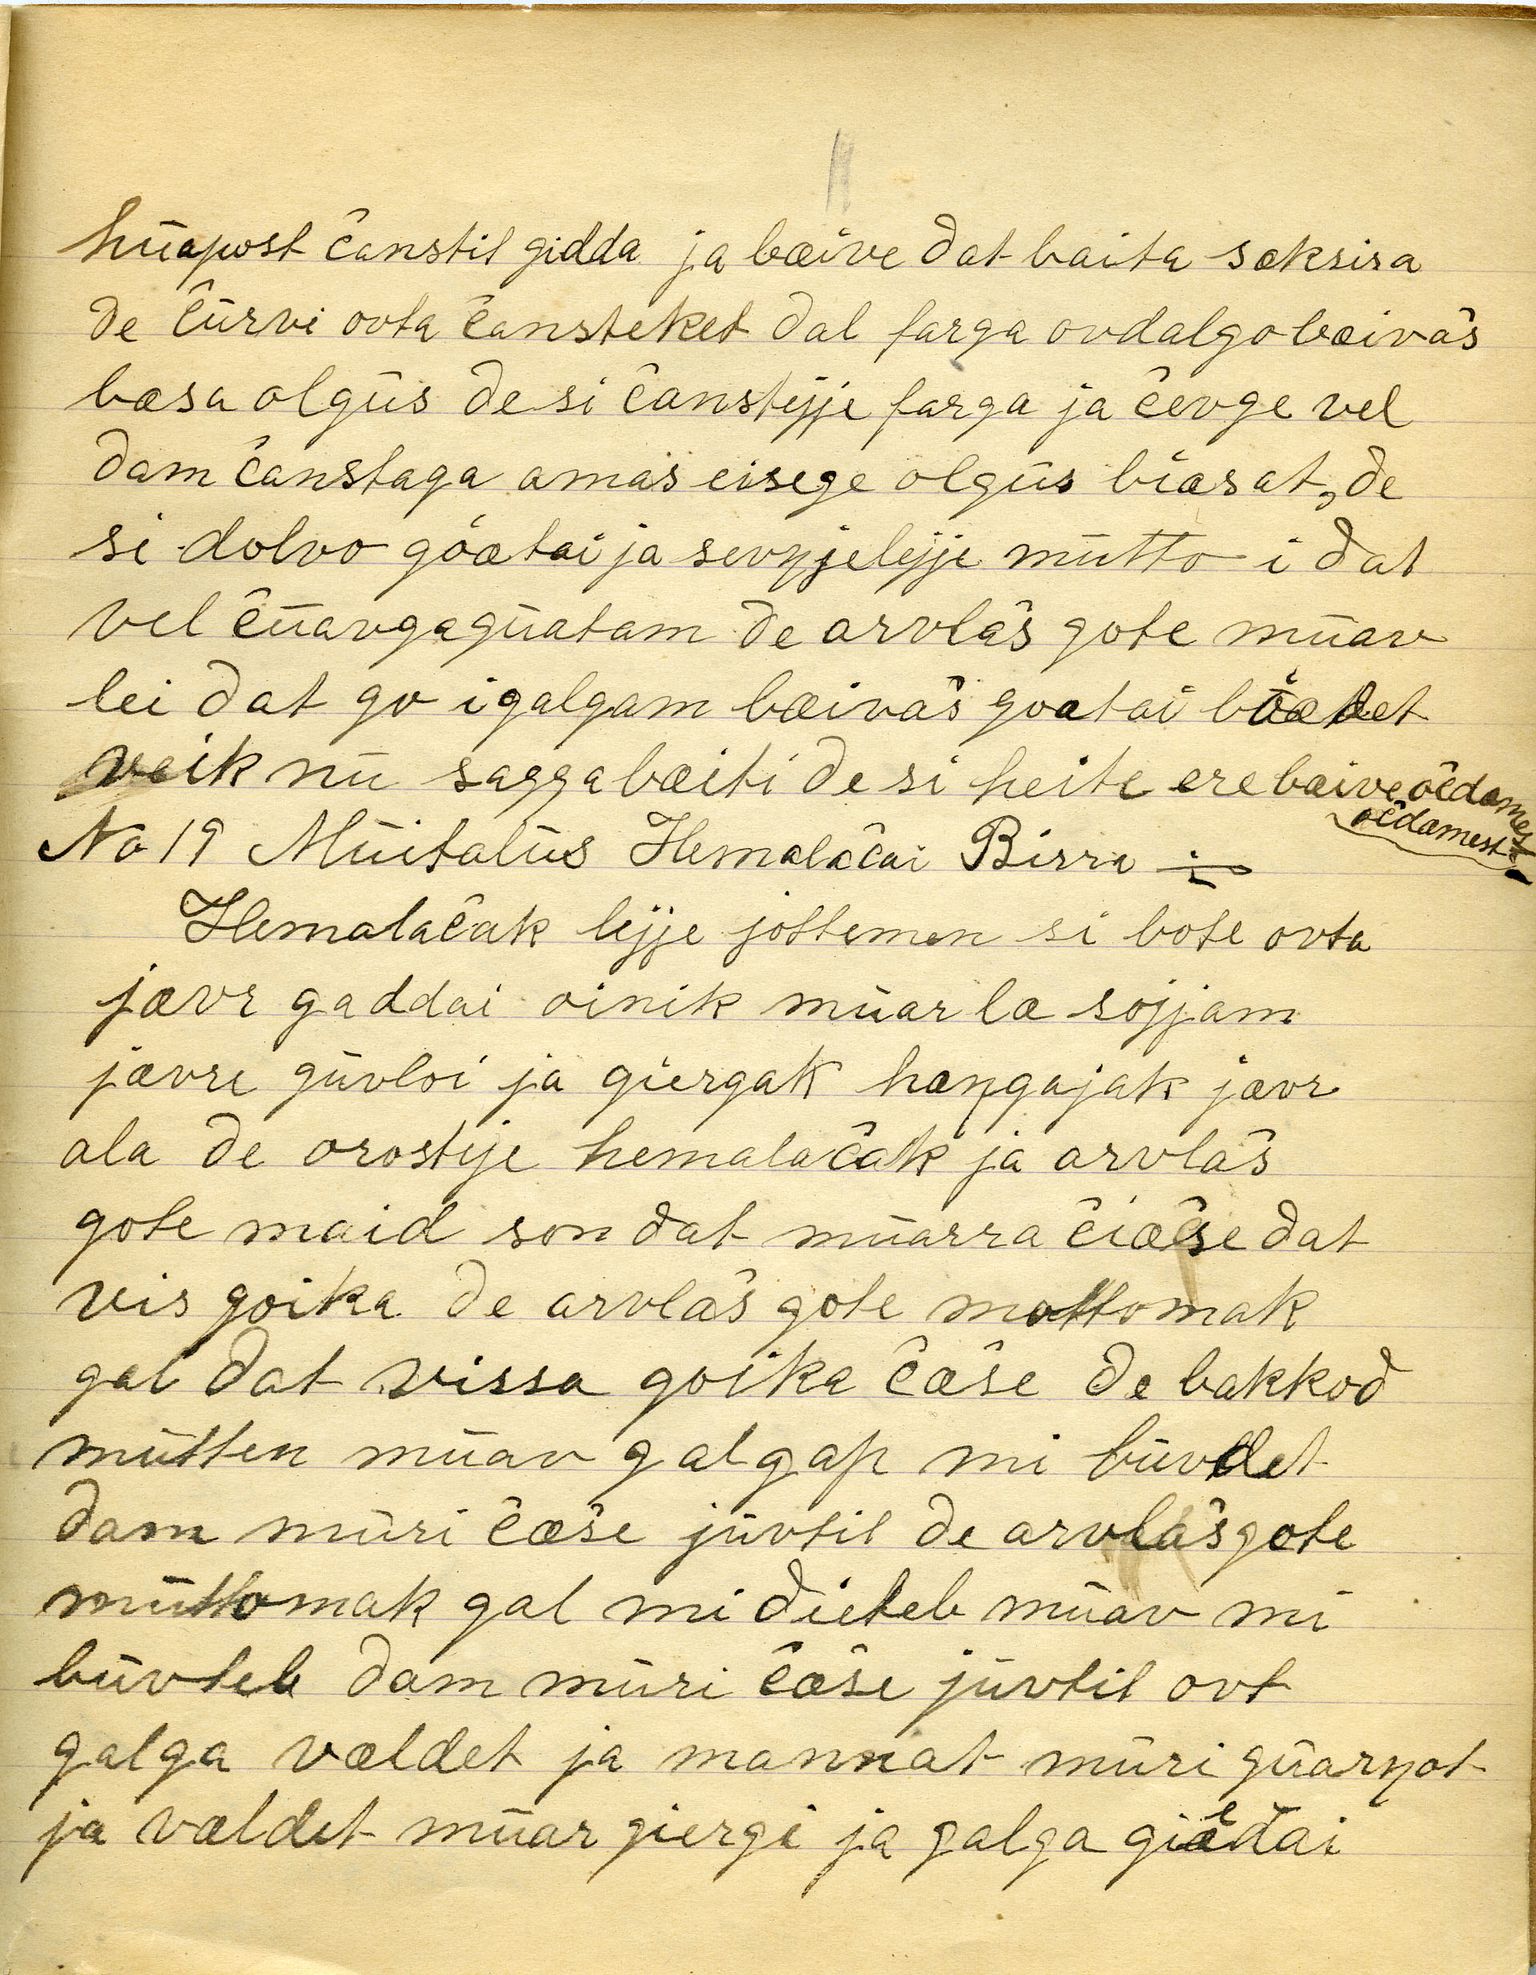 hüapost čanstil gidda ja bæive dat baita sæksira
de čürvi ovta čansteket dal farga ovdalgo bæivaš
bæsa olgüs de si čanstijje farga ja čevge vel
dam čanstaga amas eisege olgüs biæsat, de
si dolvo goætai ja sevnjelejje mütto i dat
vel čüavgagüatam de arvlaš gote müav
lei dat go i galgam bæivaš goatai boædet
veik nü sagga bæiti de si heite ere bæive očdamest
očdamest
No 19 Müitalüs Hemalačai Birra
Hemalačak lejje jottemen si bote ovta
jævr gaddai oinik müar læ sojjam
jævre güvloi ja giergak hæŋgajak jævr
ala de orostije hemalačak ja arvlaš
gote maid son dat müarra čiæčse dat
vis goika de arvlaš gote mottomak
gal dat vissa goika čæše de bakkod
mütten müav galgap mi büvdet
dam müri čæše jüvtil de arvlaš gote
müttomak gal mi dieteb müav mi
büvteb dam müri čæše jüvtil ovt
galga vældet ja mannat müri güarŋot
ja vældet müar giergi ja galga giedai